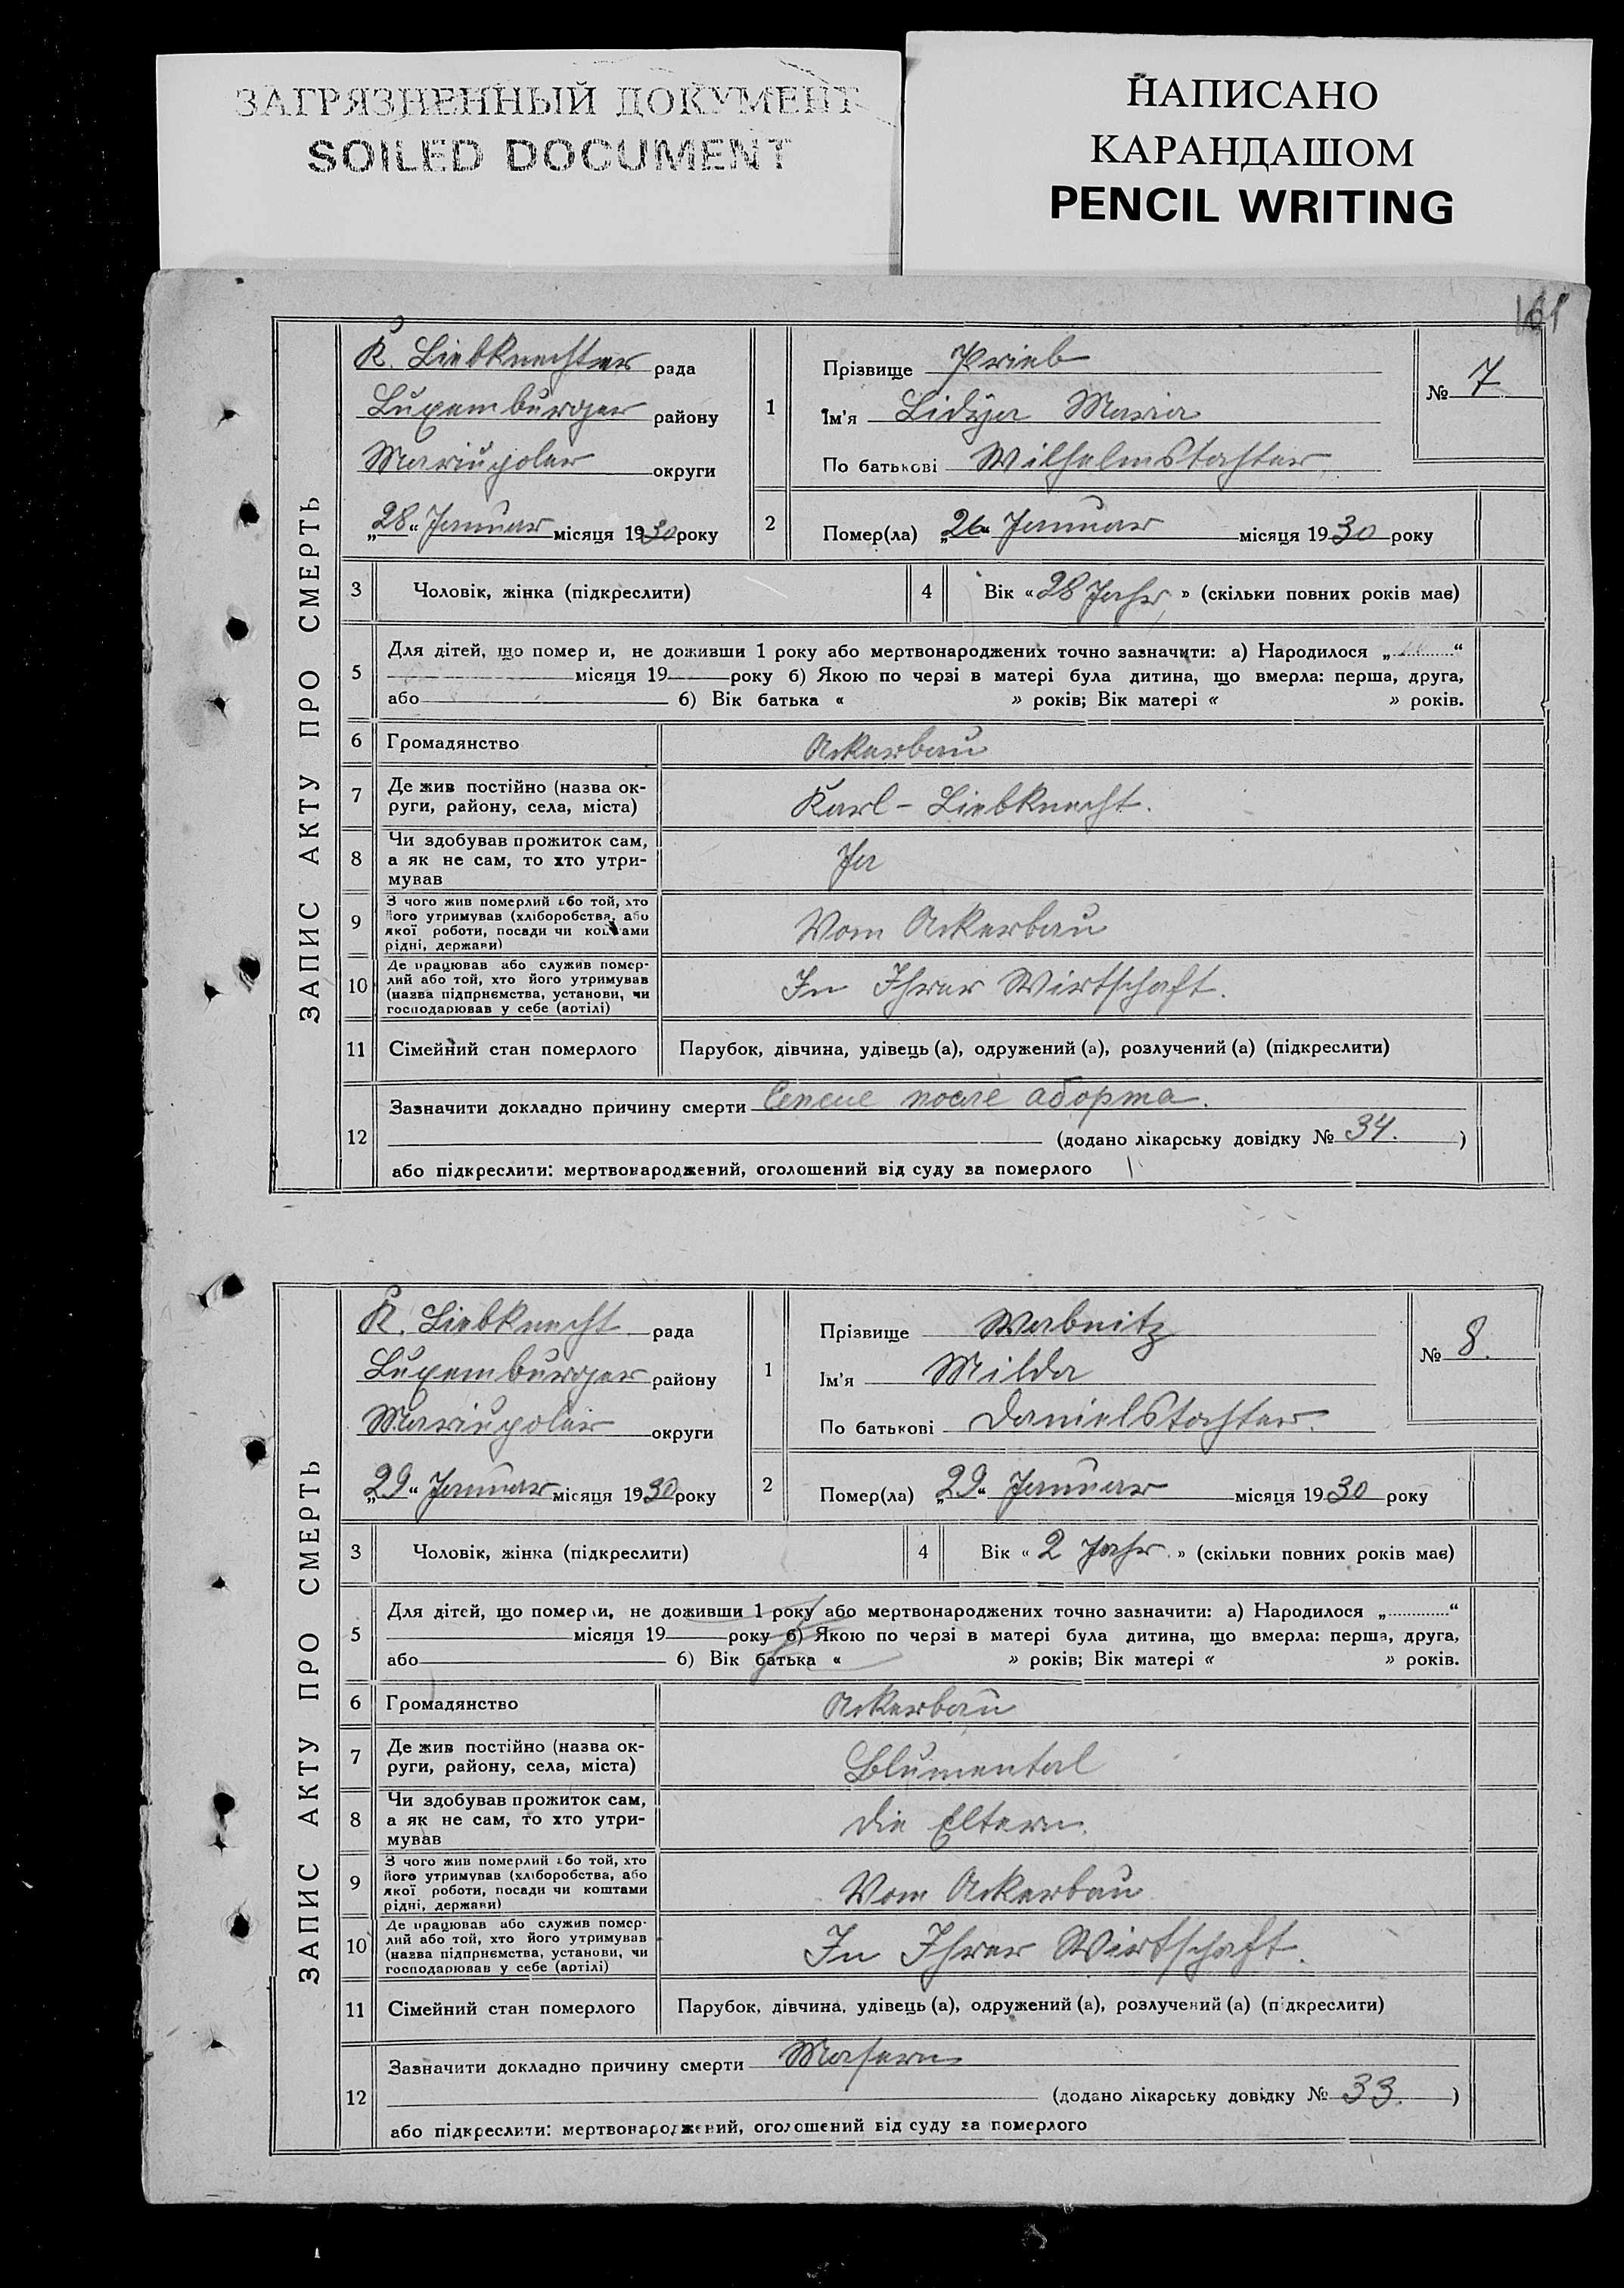 ЗАГРЯЗНЕННЫЙ ДОКУМЕНТ
SOILED DOCUMENT
НАПИСАНО
КАРАНДАШОМ
PENCIL WRITING
ЗАПИС АКТУ ПРО СМЕРТЬ
K. Liebknechter рада
Luxemburger району
Mariupoler округи
„28“ Januar місяця 1930 року
1
Прізвище Prieb
Ім'я Lidija Maria
По батькові Wilhelmstochter
№ 7
2
Помер(ла) „26“ Januar місяця 1930 року
3 Чоловік, жінка (підкреслити)
4 Вік «28 Jahr» (скільки повних років має)
5 Для дітей, що помер и, не доживши 1 року або мертвонароджених точно зазначити: а) Народилося „ “
місяця 19 року б) Якою по черзі в матері була дитина, що вмерла: перша, друга,
або б) Вік батька « » років; Вік матері « » років.
6 Громадянство Ackerbau
7 Де жив постійно (назва ок-
руги, району, села, міста) Karl-Liebknecht.
8 Чи здобував прожиток сам,
а як не сам, то хто утри-
мував Ja
9 З чого жив померлий або той, хто
його утримував (хліборобства, або
якої роботи, посади чи коштами
рідні, держави) Vom Ackerbau
10 Де працював або служив помер-
лий або той, хто його утримував
(назва підприємства, установи, чи
господарював у себе (артілі) In Ihrer Wirtschaft.
11 Сімейний стан померлого Парубок, дівчина, удівець (а), одружений (а), розлучений (а) (підкреслити)
12 Зазначити докладно причину смерти Сепсис после аборта.
(додано лікарську довідку № 34.)
або підкреслити: мертвонароджений, оголошений від суду за померлого
ЗАПИС АКТУ ПРО СМЕРТЬ
K. Liebknecht рада
Luxemburger району
Mariupoler округи
„29“ Januar місяця 1930 року
1
Прізвище Wabnitz
Ім'я Milda
По батькові Danielstochter.
№ 8.
2
Помер(ла) „29“ Januar місяця 1930 року
3 Чоловік, жінка (підкреслити)
4 Вік «2 Jahr.» (скільки повних років має)
5 Для дітей, що помер и, не доживши 1 року або мертвонароджених точно зазначити: а) Народилося „ “
місяця 19 року б) Якою по черзі в матері була дитина, що вмерла: перша, друга,
або б) Вік батька « » років; Вік матері « » років.
6 Громадянство Ackerbau
7 Де жив постійно (назва ок-
руги, району, села, міста) Blumental
8 Чи здобував прожиток сам,
а як не сам, то хто утри-
мував die Eltern.
9 З чого жив померлий або той, хто
його утримував (хліборобства, або
якої роботи, посади чи коштами
рідні, держави) Vom Ackerbau
10 Де працював або служив помер-
лий або той, хто його утримував
(назва підприємства, установи, чи
господарював у себе (артілі) In Ihrer Wirtschaft.
11 Сімейний стан померлого Парубок, дівчина, удівець (а), одружений (а), розлучений (а) (підкреслити)
12 Зазначити докладно причину смерти Masern
(додано лікарську довідку № 33.)
або підкреслити: мертвонароджений, оголошений від суду за померлого